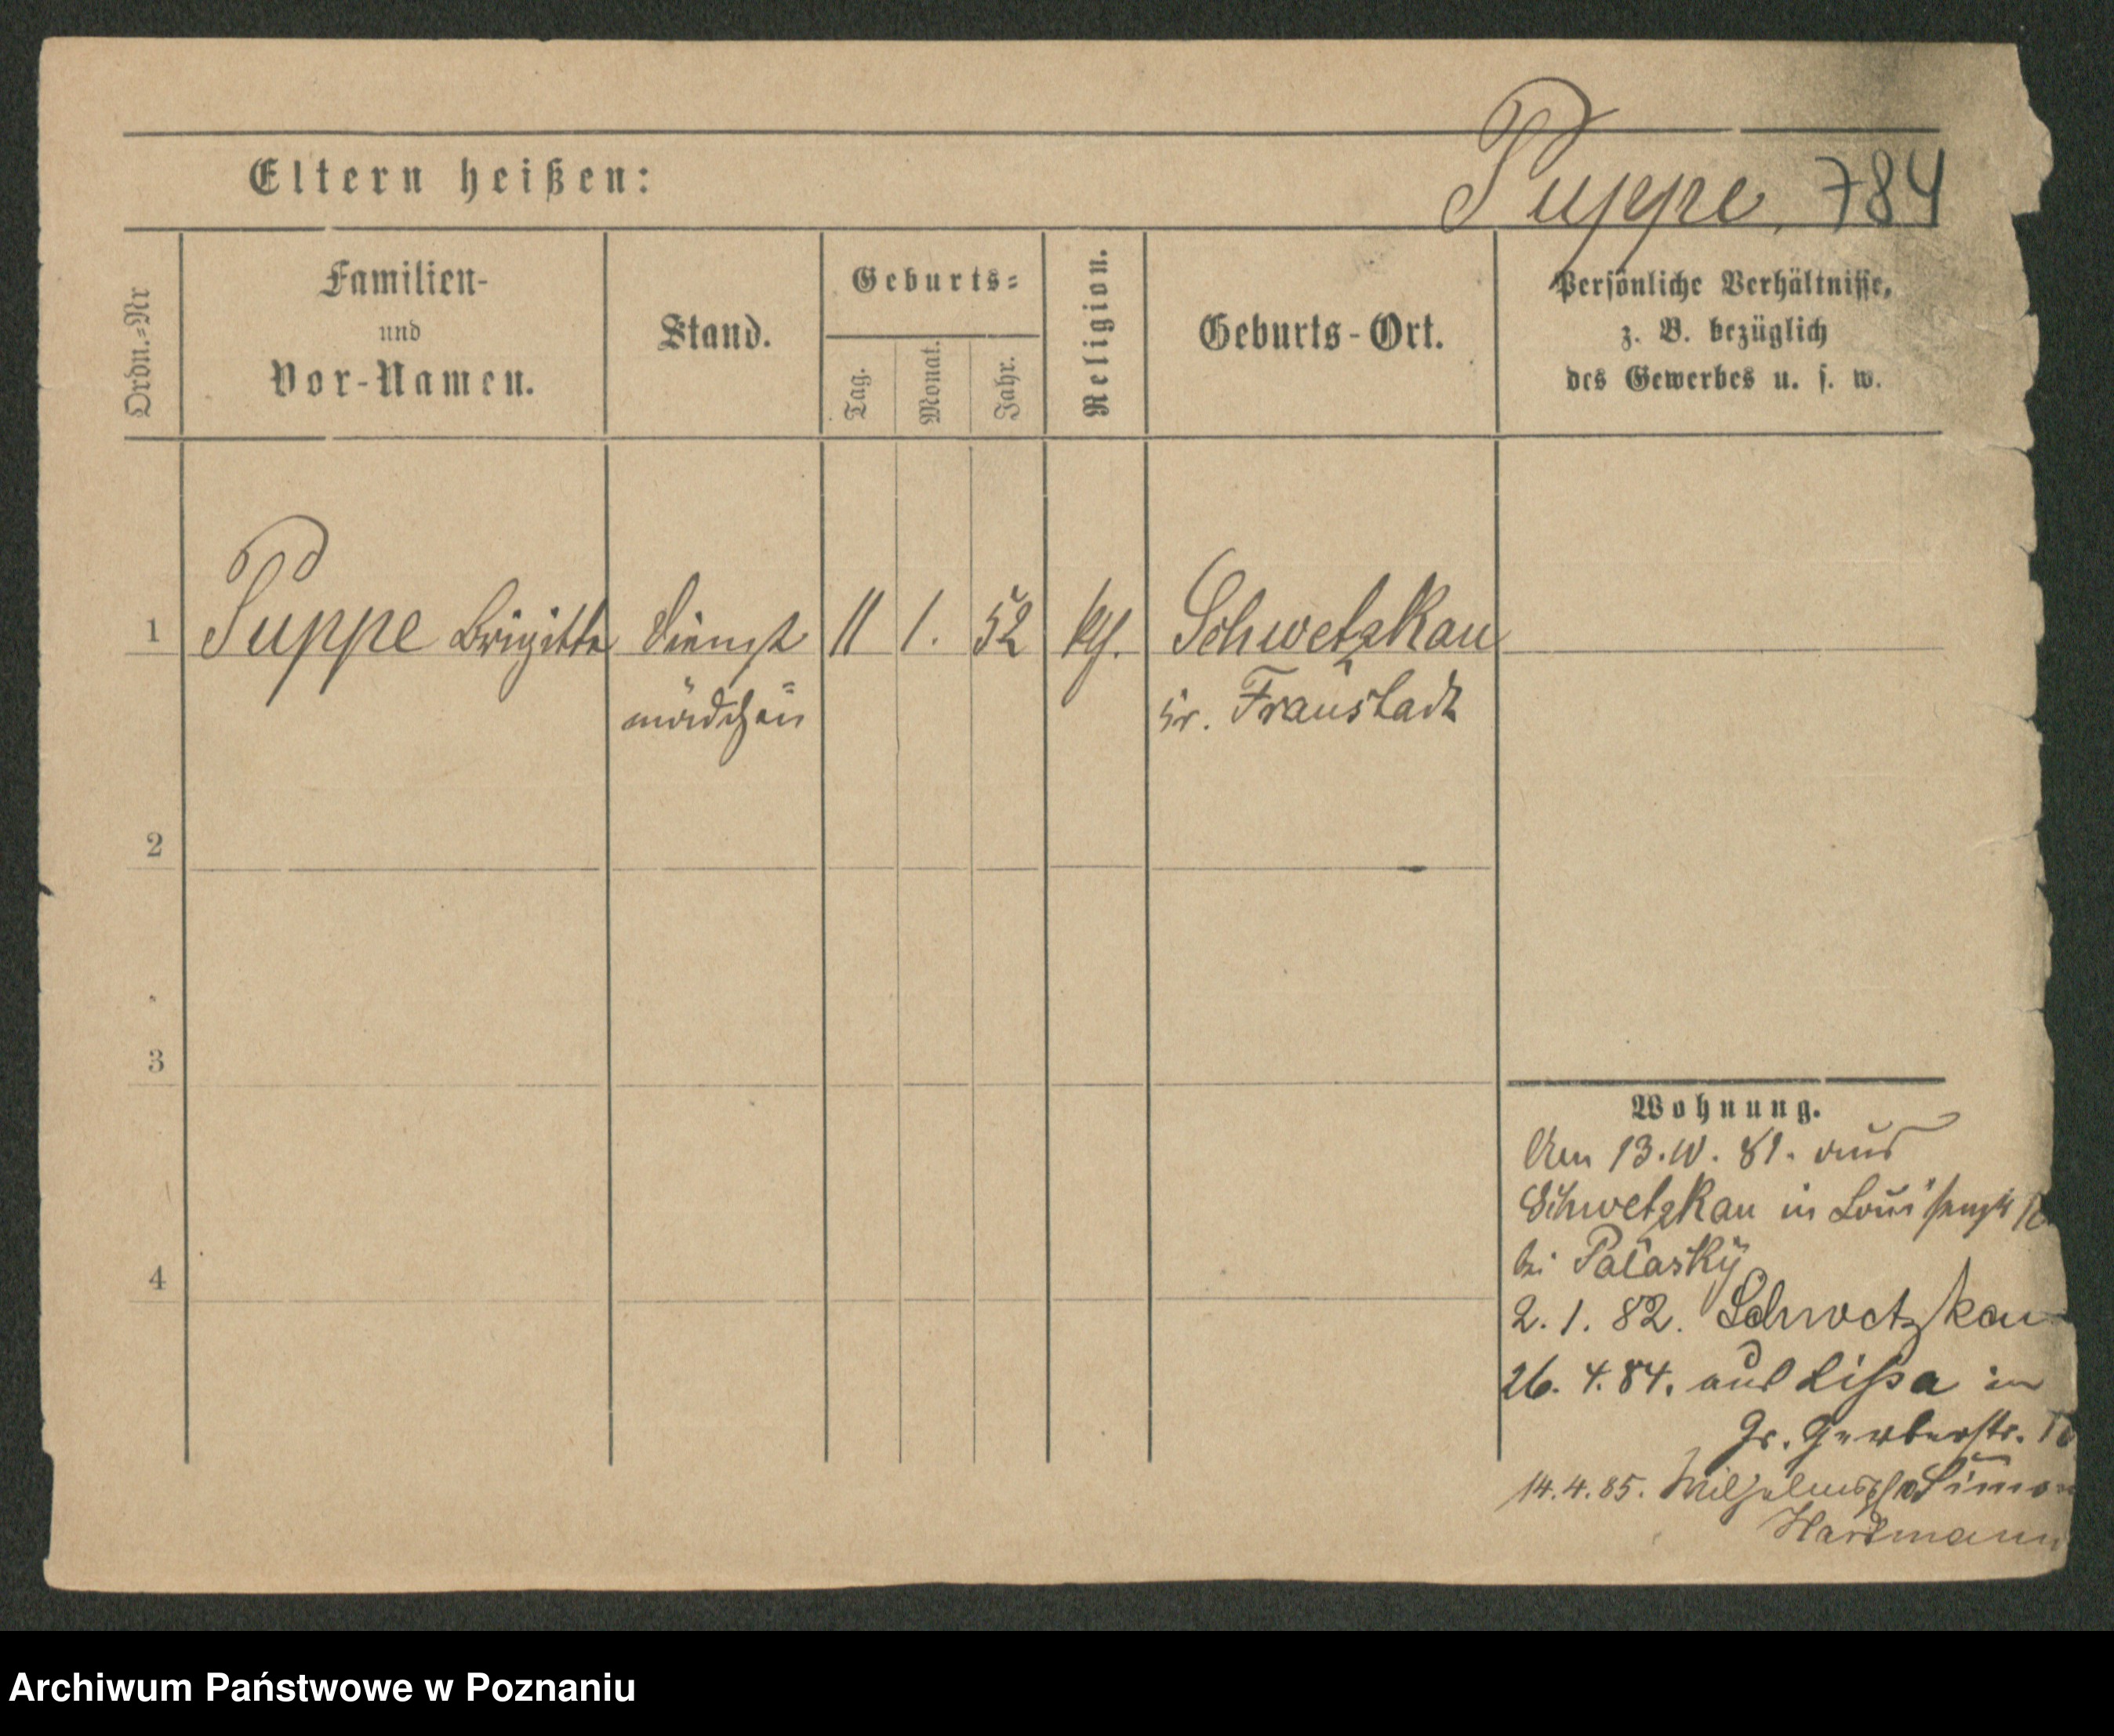 Eltern heißen:
Puppe, 784
Ordn.=Nr
Familien-
und
Vor-Namen.
Stand.
Geburts=
Tag.
Monat.
Jahr.
Religion.
Geburts-Ort.
Persönliche Verhältnisse,
z. B. bezüglich
des Gewerbes u. s. w.
1 Puppe Brigitta Dienst 11 1. 52 Schwetzkau
mädchen Kr. Fraustadt
2
3
4
Wohnung.
Am 13. 81. aus
Schwetzkau in
bei
2. 1. 82. Schwetzkau
26. 4. 84. aus Lissa in
Gr. Gerberstr.
14. 4. 85. Simon
Hartmann
Archiwum Państwowe w Poznaniu